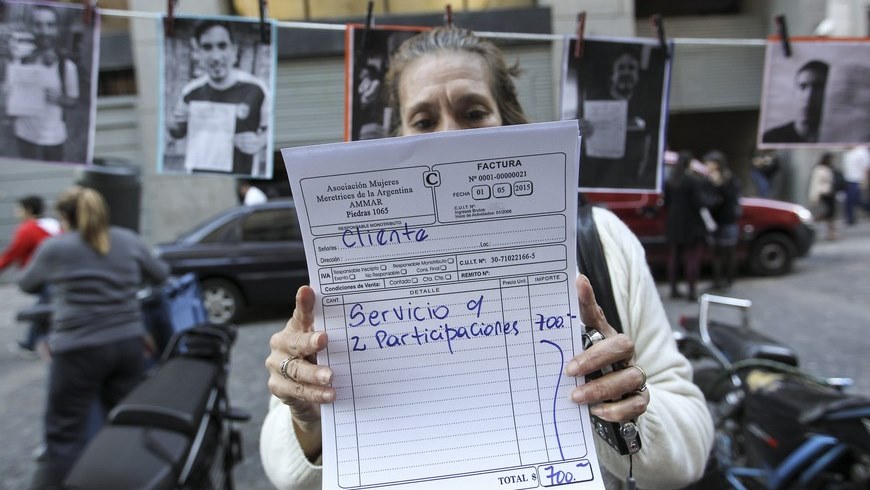 Asociación Mujeres
Meretrices de la Argentina
AMMAR
Piedras 1065
RESPONSABLE MONOTRIBUTO
C
FACTURA
Nº 0001-00000021
FECHA 01 05 2015
C.U.I.T. Nº
Ingresos Brutos
Inicio de Actividades: 01/2008
Señor/es: Cliente
Dirección: Loc:
IVA
Responsable Inscripto
Responsable Monotributo
Exento
No Responsable
Cons. Final
C.U.I.T. Nº 30-71022166-5
Condiciones de Venta: Contado Cta. Cte.
REMITO Nº:
CANT. DETALLE Precio Unit IMPORTE
Servicio y
2 Participaciones 700.-
TOTAL $ 700.-